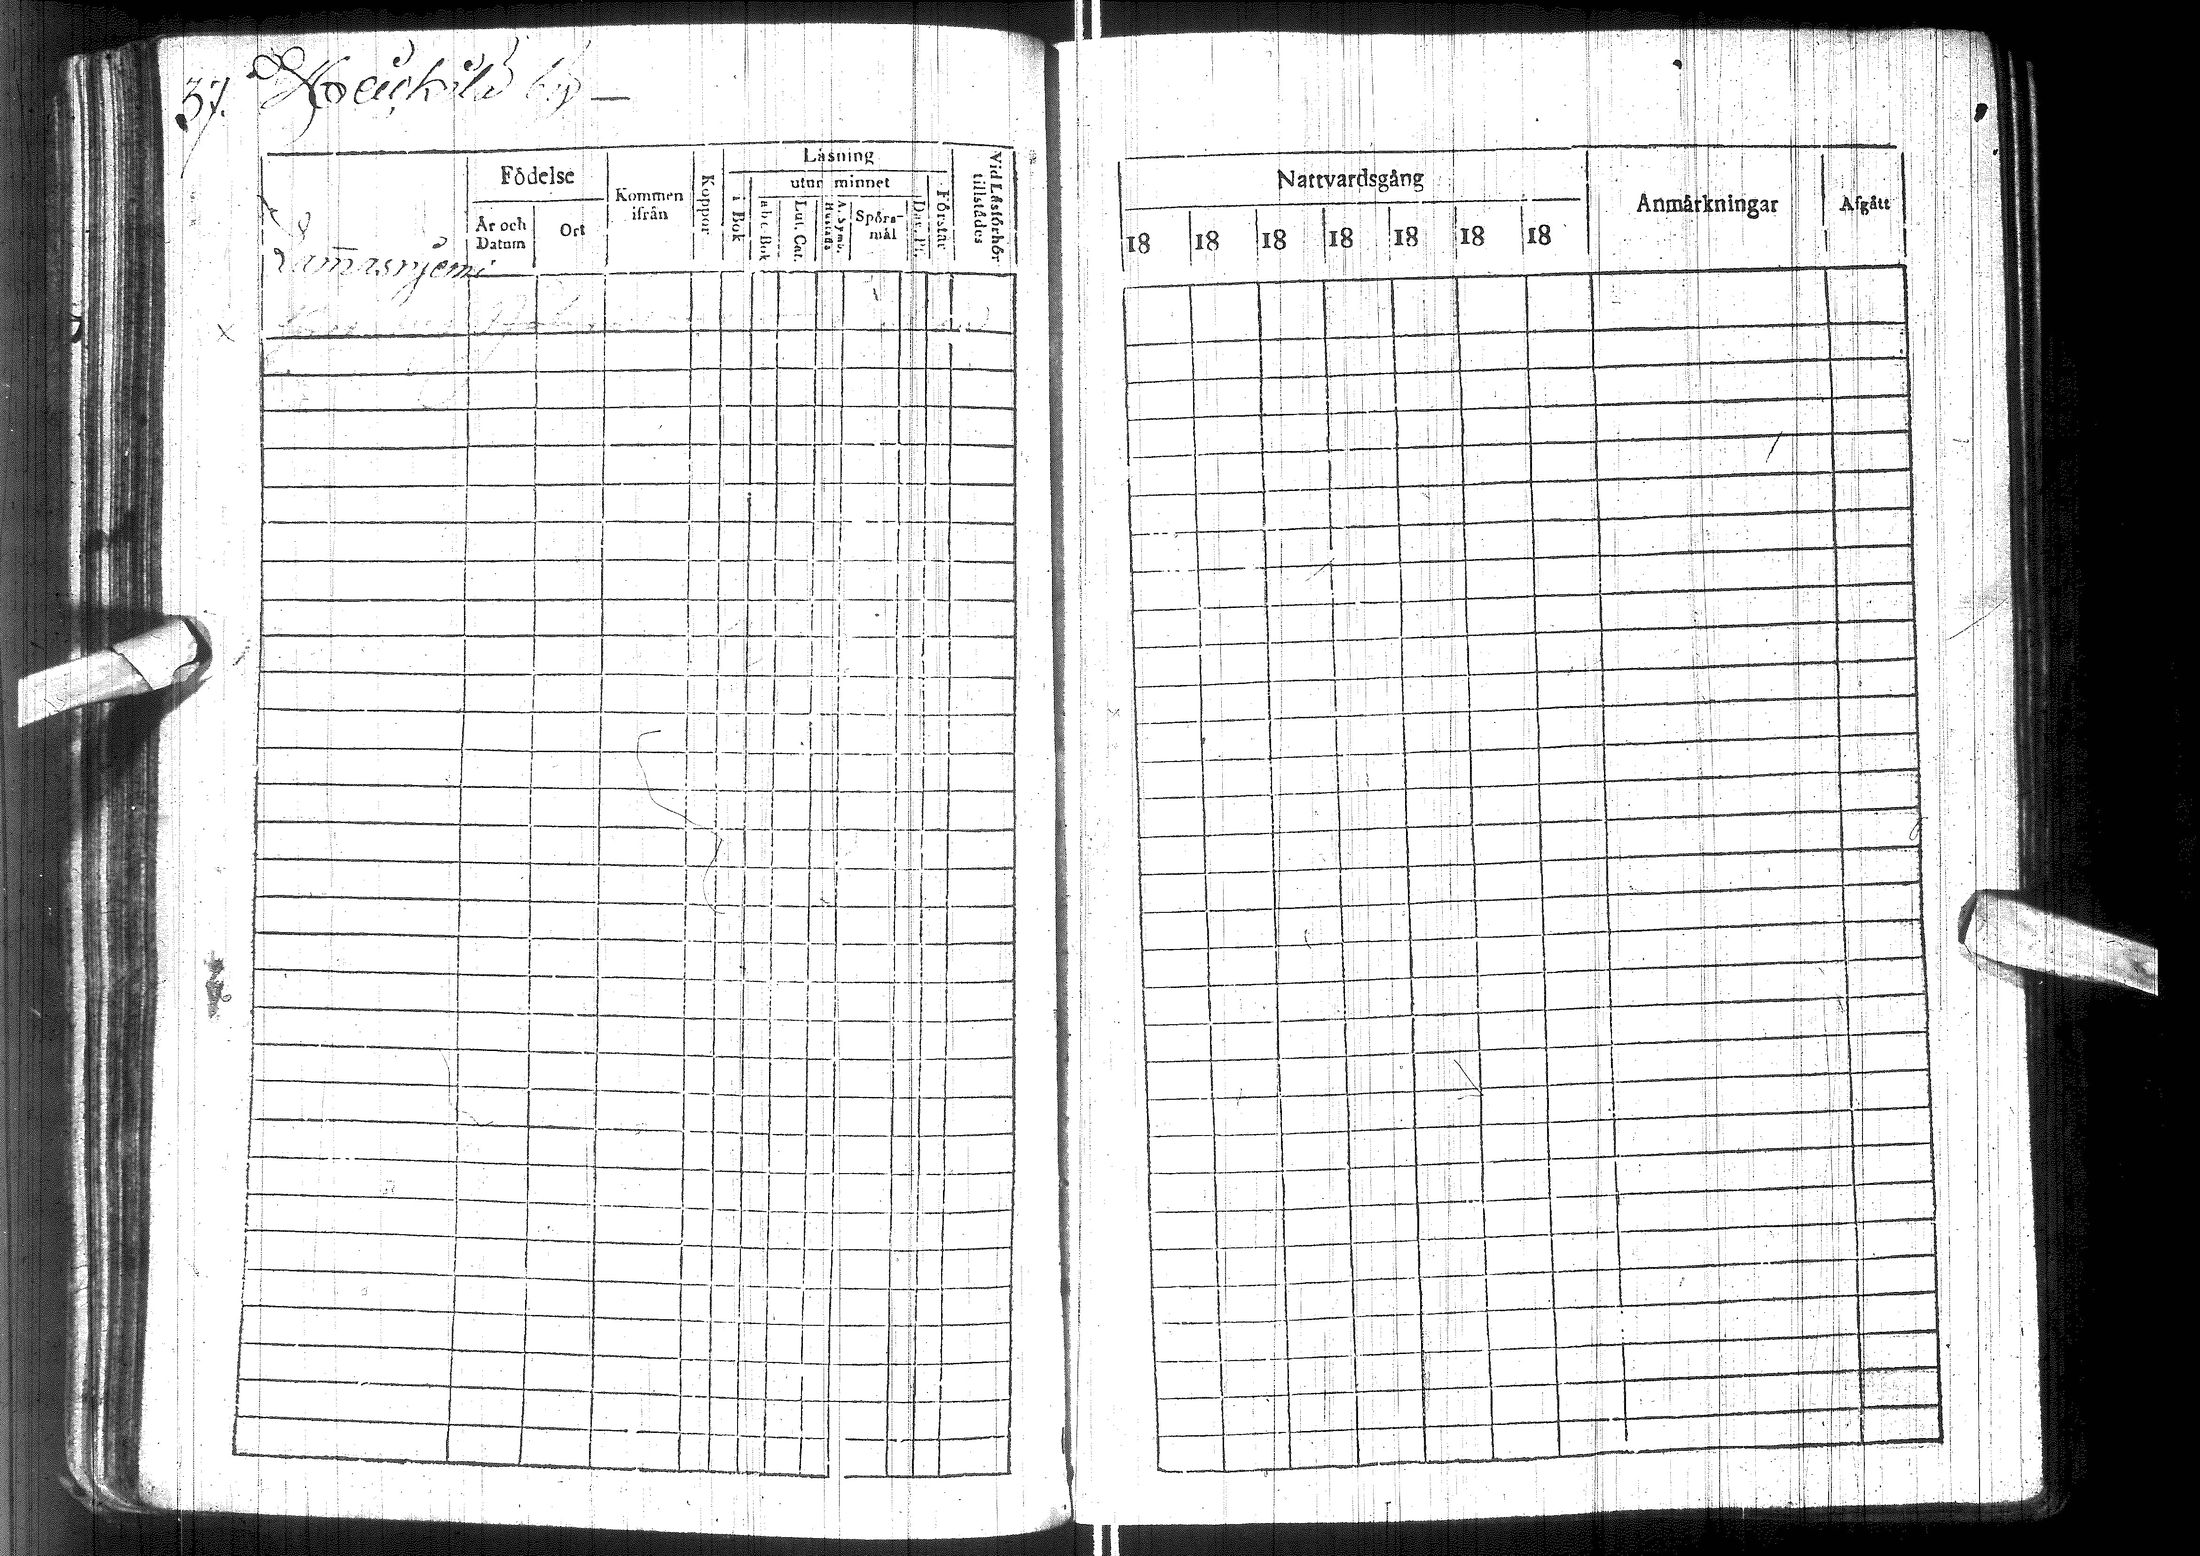 37. Heickilä by —
Födelse
År och Datum
Ort
Kommen ifrån
Koppor
Läsning
i Bok
utur minnet
abc-Bok
Lut. Cat.
A. Symb. Hustafla
Spörs-mål
Dav. Ps.
Förstår
Vid Läsförhör tillstädes
Nattvardsgång
18 18 18 18 18 18 18
Anmärkningar
Afgått